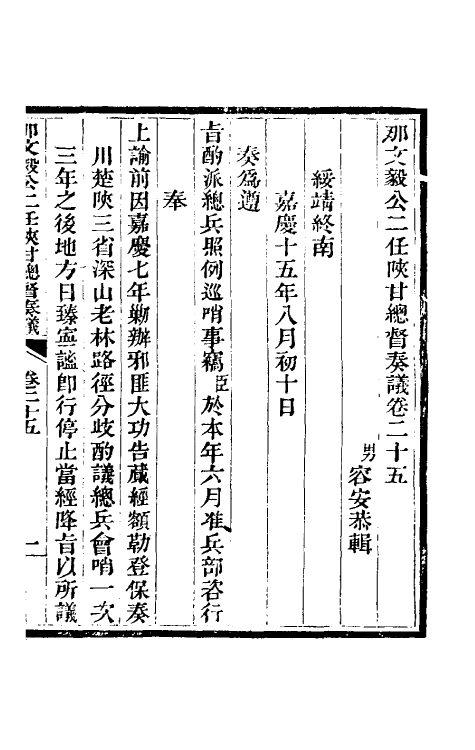 那文毅公二任陝甘總督奏議卷二十五
男容安恭輯
綏靖終南
嘉慶十五年八月初十日
奏爲遵
旨酌派總兵照例巡哨事竊臣於本年六月准兵部咨行
奉
上諭前因嘉慶七年勦辦邪匪大功告蕆經額勒登保奏
川楚陝三省深山老林路徑分歧酌議總兵會哨一次
三年之後地方日臻寧謐卽行停止當經降旨以所議
那文毅公二任陝甘總督奏議 卷二十五 一